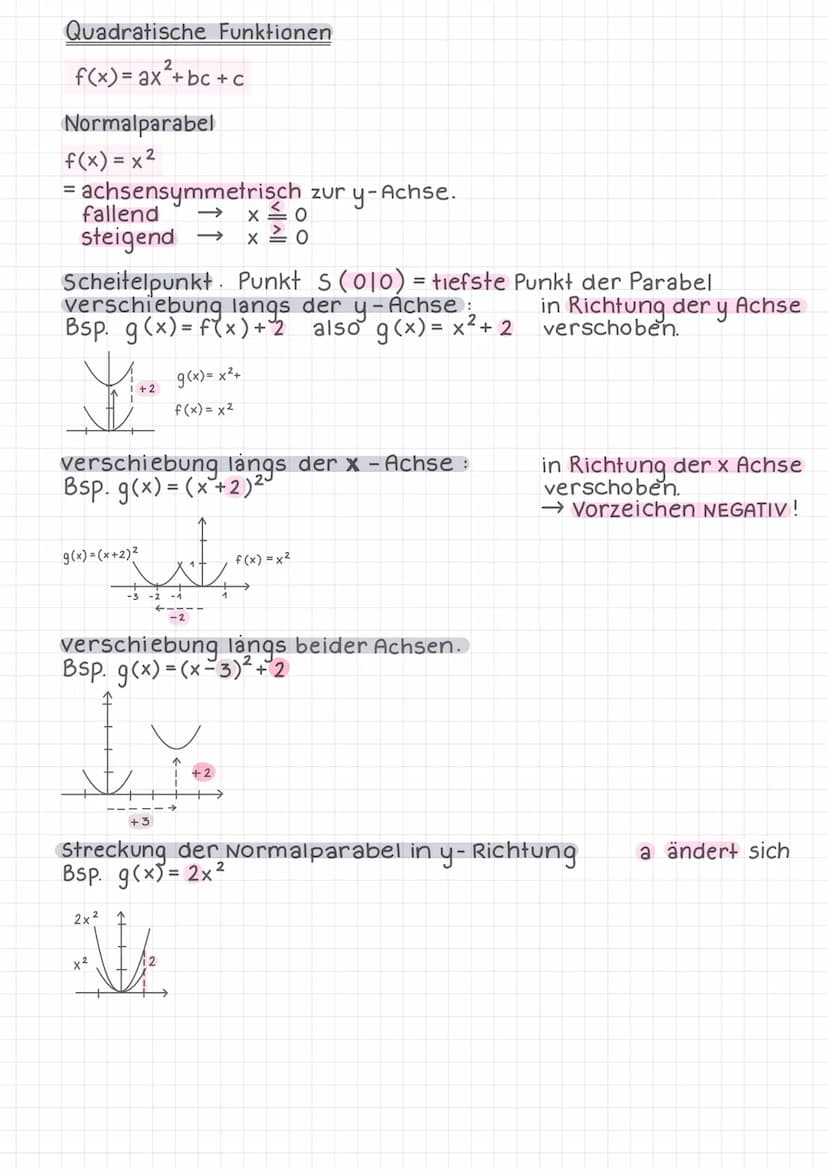 Quadratische Funktionen
f(x) = ax²+ bc + c
Normalparabel
f(x) = x²
= achsensymmetrisch zur y-Achse.
fallend → x ≦ 0
steigend → x ≧ 0
Scheitelpunkt. Punkt S (0|0) = tiefste Punkt der Parabel
verschiebung längs der y-Achse: in Richtung der y Achse
Bsp. g(x) = f(x) + 2 also g(x) = x² + 2 verschoben.
+2 g(x) = x²+
f(x) = x²
verschiebung längs der x-Achse: in Richtung der x Achse
Bsp. g(x) = (x+2)² verschoben.
→ Vorzeichen NEGATIV!
g(x)=(x+2)² 1 f(x) = x²
-3 -2 -1 1
-2
verschiebung längs beider Achsen.
Bsp. g(x) = (x-3)² + 2
+2
+3
Streckung der Normalparabel in y-Richtung a ändert sich
Bsp. g(x) = 2x²
2x²
x² 2